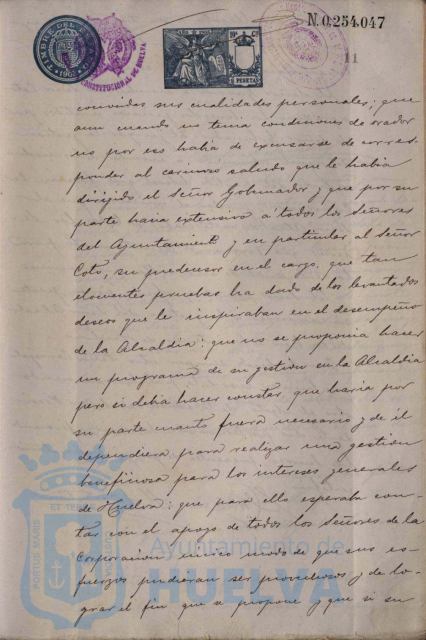 TIMBRE DEL
N.0,254,047
CONSTITUCIONAL DE HUELVA
11
conocidos sus cualidades personales; que
aun cuando no tenia condiciones de orador
no por eso habia de excusarse de corres-
ponder al cariñoso saludo que le habia
dirijido el Señor Gobernador y que por su
parte hacia extensivo á todos los Señores
del Ayuntamiento y en particular al Señor
Coto, su predecesor en el cargo, que tan
elocuentes pruebas ha dado de los levantados
deseos que le inspiraban en el desempeño
de la Alcaldia: que no se proponia hacer
un programa de su gestion en la Alcaldia
pero si debia hacer constar que haria por
su parte cuanto fuera necesario y de él
dependiera para realizar una gestion
beneficiosa para los intereses generales
de Huelva; que para ello esperaba con-
tar con el apoyo de todos los Señores de la
Corporacion único modo de que sus es-
fuerzos pudieran ser provechosos y de lo-
grar el fin que se propone y que si su
PORTUS MARIS
Ayuntamiento de
HUELVA